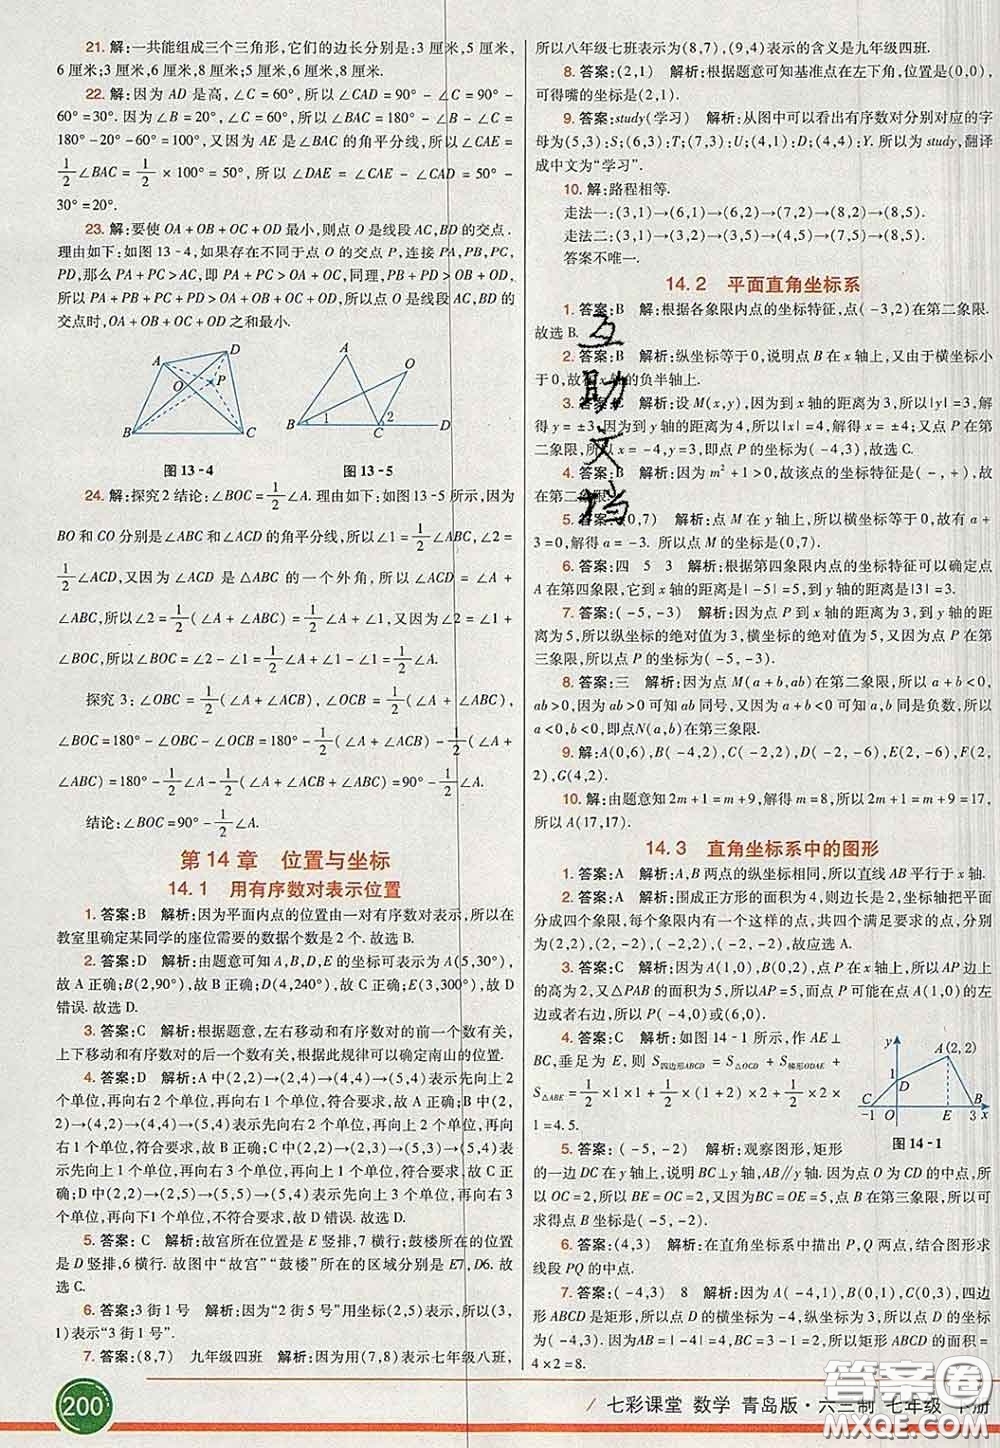 21. 解:一共能组成三个三角形,它们的边长分别是:3 厘米,5 厘米,
6 厘米;3 厘米,6 厘米,8 厘米;5 厘米,6 厘米,8 厘米.
22. 解:因为 AD 是高,∠C=60°,所以∠CAD=90°-∠C=90°-60°
=30°. 因为∠B=20°,∠C=60°,所以∠BAC=180°-∠B-∠C=
180°-20°-60°=100°. 又因为 AE 是∠BAC 的角平分线,所以∠CAE=
1/2∠BAC=1/2×100°=50°,所以∠DAE=∠CAE-∠CAD=50°-
30°=20°.
23. 解:要使 OA+OB+OC+OD 最小,则点 O 是线段 AC,BD 的交点.
理由如下:如图 13-4,如果存在不同于点 O 的交点 P,连接 PA,PB,PC,
PD,那么 PA+PC>AC,即 PA+PC>OA+OC,同理,PB+PD>OB+
OD,所以 PA+PB+PC+PD>OA+OB+OC+OD,所以点 O 是线段 AC,BD 的
交点时,OA+OB+OC+OD 之和最小.
A D O P B C
A O B 1 2 C D
图 13-4 图 13-5
24. 解:探究 2 结论:∠BOC=1/2∠A. 理由如下:如图 13-5 所示,因为
BO 和 CO 分别是∠ABC 和∠ACD 的角平分线,所以∠1=1/2∠ABC,∠2=
1/2∠ACD. 又因为∠ACD 是△ABC 的一个外角,所以∠ACD=∠A+
∠ABC,所以∠2=1/2(∠A+∠ABC)=1/2∠A+∠1. 因为∠2=∠1+
∠BOC,所以∠BOC=∠2-∠1=1/2∠A+∠1-∠1=1/2∠A.
探究 3:∠OBC=1/2(∠A+∠ACB),∠OCB=1/2(∠A+∠ABC),
∠BOC=180°-∠OBC-∠OCB=180°-1/2(∠A+∠ACB)-1/2(∠A+
∠ABC)=180°-1/2∠A-1/2(∠A+∠ACB+∠ABC)=90°-1/2∠A.
结论:∠BOC=90°-1/2∠A.
第 14 章 位置与坐标
14.1 用有序数对表示位置
1. 答案:B 解析:因为平面内点的位置由一对有序数对表示,所以在
教室里确定某同学的座位需要的数据个数是 2 个. 故选 B.
2. 答案:D 解析:由题意可知 A,B,D,E 的坐标可表示为 A(5,30°),
故 A 正确;B(2,90°),故 B 正确;D(4,240°),故 C 正确;E(3,300°),故 D
错误. 故选 D.
3. 答案:C 解析:根据题意,左右移动和有序数对的前一个数有关,
上下移动和有序数对的后一个数有关,根据此规律可以确定南山的位置.
4. 答案:D 解析:A 中(2,2)→(2,4)→(5,4)表示先向上 2
个单位,再向右 2 个单位,再向右 1 个单位,符合要求,故 A 正确;B 中(2,
2)→(2,4)→(4,4)→(5,4)表示先向上 2 个单位,再向右 2 个单位,再向
右 1 个单位,符合要求,故 B 正确;C 中(2,2)→(4,2)→(4,4)→(5,4)表
示先向右 2 个单位,再向上 2 个单位,再向右 1 个单位,符合要求,故 C 正
确;D 中(2,2)→(2,5)→(5,5)→(5,4)表示先向上 3 个单位,再向右 3 个
单位,再向下 1 个单位,不符合要求,故 D 错误. 故选 D.
5. 答案:C 解析:故宫所在位置是 E 竖排,7 横行;鼓楼所在的位置
是 D 竖排,6 横行. 故图中“故宫”“鼓楼”所在的区域分别是 E7,D6. 故
选 C.
6. 答案:3 街 1 号 解析:因为“2 街 5 号”用坐标(2,5)表示,所以(3,
1)表示“3 街 1 号”.
7. 答案:(8,7) 九年级四班 解析:因为用(7,8)表示七年级八班,
所以八年级七班表示为(8,7),(9,4)表示的含义是九年级四班.
8. 答案:(2,1) 解析:根据题意可知基准点在左下角,位置是(0,0),
可得嘴的坐标是(2,1).
9. 答案:study(学习) 解析:从图中可以看出有序数对分别对应的字
母为(5,3):S;(6,3):T;(7,3):U;(4,1):D;(4,4):Y. 所以为 study,翻译
成中文为“学习”.
10. 解:路程相等.
走法一:(3,1)→(6,1)→(6,2)→(7,2)→(8,2)→(8,5).
走法二:(3,1)→(3,2)→(3,5)→(4,5)→(7,5)→(8,5).
答案不唯一.
14.2 平面直角坐标系
1. 答案:B 解:根据各象限内点的坐标特征,点(-3,2)在第二象限.
故选 B.
2. 答案:B 解析:纵坐标等于 0,说明点 B 在 x 轴上,又由于横坐标小
于 0,故在 x 轴的负半轴上.
3. 答案: 解析:设 M(x,y),因为到 x 轴的距离为 3,所以|y|=3,解
得 y=±3,因为到 y 轴的距离为 4,所以|x|=4,解得 x=±4;又因为点在第
二象限,所以 x=-4,y=3,即点 M 的坐标为(-4,3),故选 C.
4. 答案:B 解析:因为 m²+1>0,故该点的坐标特征是(-,+),故
在第二象限.
5. 答案:(0,7) 解析:点 M 在 y 轴上,所以横坐标等于 0,所以有 a+
3=0,解得 a=-3. 所以点 M 的坐标为(0,7).
6. 答案:四 5 3 解析:根据第四象限内点的坐标特征可以确定点
A 在第四象限,它到 x 轴的距离是|-5|=5,到 y 轴的距离是|3|=3.
7. 答案:(-5,-3) 解析:因为点 P 到 x 轴的距离为 3,到 y 轴的距
离为 5,所以纵坐标的绝对值为 3,横坐标的绝对值为 5,又因为点 P 在第
三象限,所以点 P 的坐标为(-5,-3).
8. 答案:三 解析:因为点 M(a+b,ab)在第二象限,所以 a+b<0,
ab>0,因为 ab>0 可知 ab 同号,又因为 a+b<0 可知 ab 同是负数,所以
a<0,b<0,即点N(a,b)在第三象限.
9. 解:A(0,6),B(-4,2),C(-2,2),D(-2,-6),E(2,-6),F(2,
2),G(4,2).
10. 解:由题意知 2m+1=m+9,解得 m=8,所以 2m+1=m+9=17,
所以 A(17,17).
14.3 直角坐标系中的图形
1. 答案:A 解析:A,B 两点的纵坐标相同,所以直线 AB 平行于 x 轴.
2. 答案:A 解析:围成正方形的面积为 4,则边长是 2,坐标轴把平面
分成四个象限,每个象限内有一个这样的点,共四个满足要求的点,分别
为(2,2),(2,-2),(-2,2),(-2,-2),故应选 A.
3. 答案:C 解析:因为 A(1,0),B(0,2),点 P 在 x 轴上,所以 AP 边上
的高为 2,又△PAB 的面积为 5,所以 AP=5,而点 P 可能在点 A(1,0)的左
边或者右边,所以 P(-4,0)或(6,0).
4. 答案:C 解析:如图 14-1 所示,作 AE⊥
BC,垂足为 E,则 S四边形ABCD=S△OCD+S梯形ODAE+
S△ABE=1/2×1×1+1/2×(1+2)×2+1/2×2×
1=4.5.
y A(2,2) 1 D C B -1 O E 3 x
图 14-1
5. 答案:(-5,-2) 解析:观察图形,矩形
的一边 DC 在 y 轴上,说明 BC⊥y 轴,AB∥y 轴. 因为点 O 为 CD 的中点,所
以 OC=2,所以 BE=OC=2,又因为 BC=OE=5,点 B 在第三象限,所以可
求得点 B 坐标是(-5,-2).
6. 答案:(4,3) 解析:在直角坐标系中描出 P,Q 两点,结合图形求
线段 PQ 的中点.
7. 答案:(-4,3) 8 解析:因为 A(-4,1),B(0,1),C(0,3),四边
形 ABCD 是矩形,所以点 D 的横坐标为-4,纵坐标为 3,所以点 D 的坐标
为(-4,3). 因为 AB=|-4|=4,BC=3-1=2,所以矩形 ABCD 的面积=
4×2=8.
互助文档
200
七彩课堂 数学 青岛版·六三制 七年级 下册
答案圈
MXQE.COM